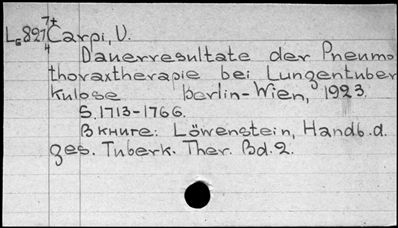 L₆827 7+/4 Carpi, U.
Dauerresultate der Pneumo
thoraxtherapie bei Lungentuber
kulose Berlin-Wien, 1923.
S. 1713-1766.
В книге: Löwenstein, Handb. d.
ges. Tuberk. Ther. Bd. 2.